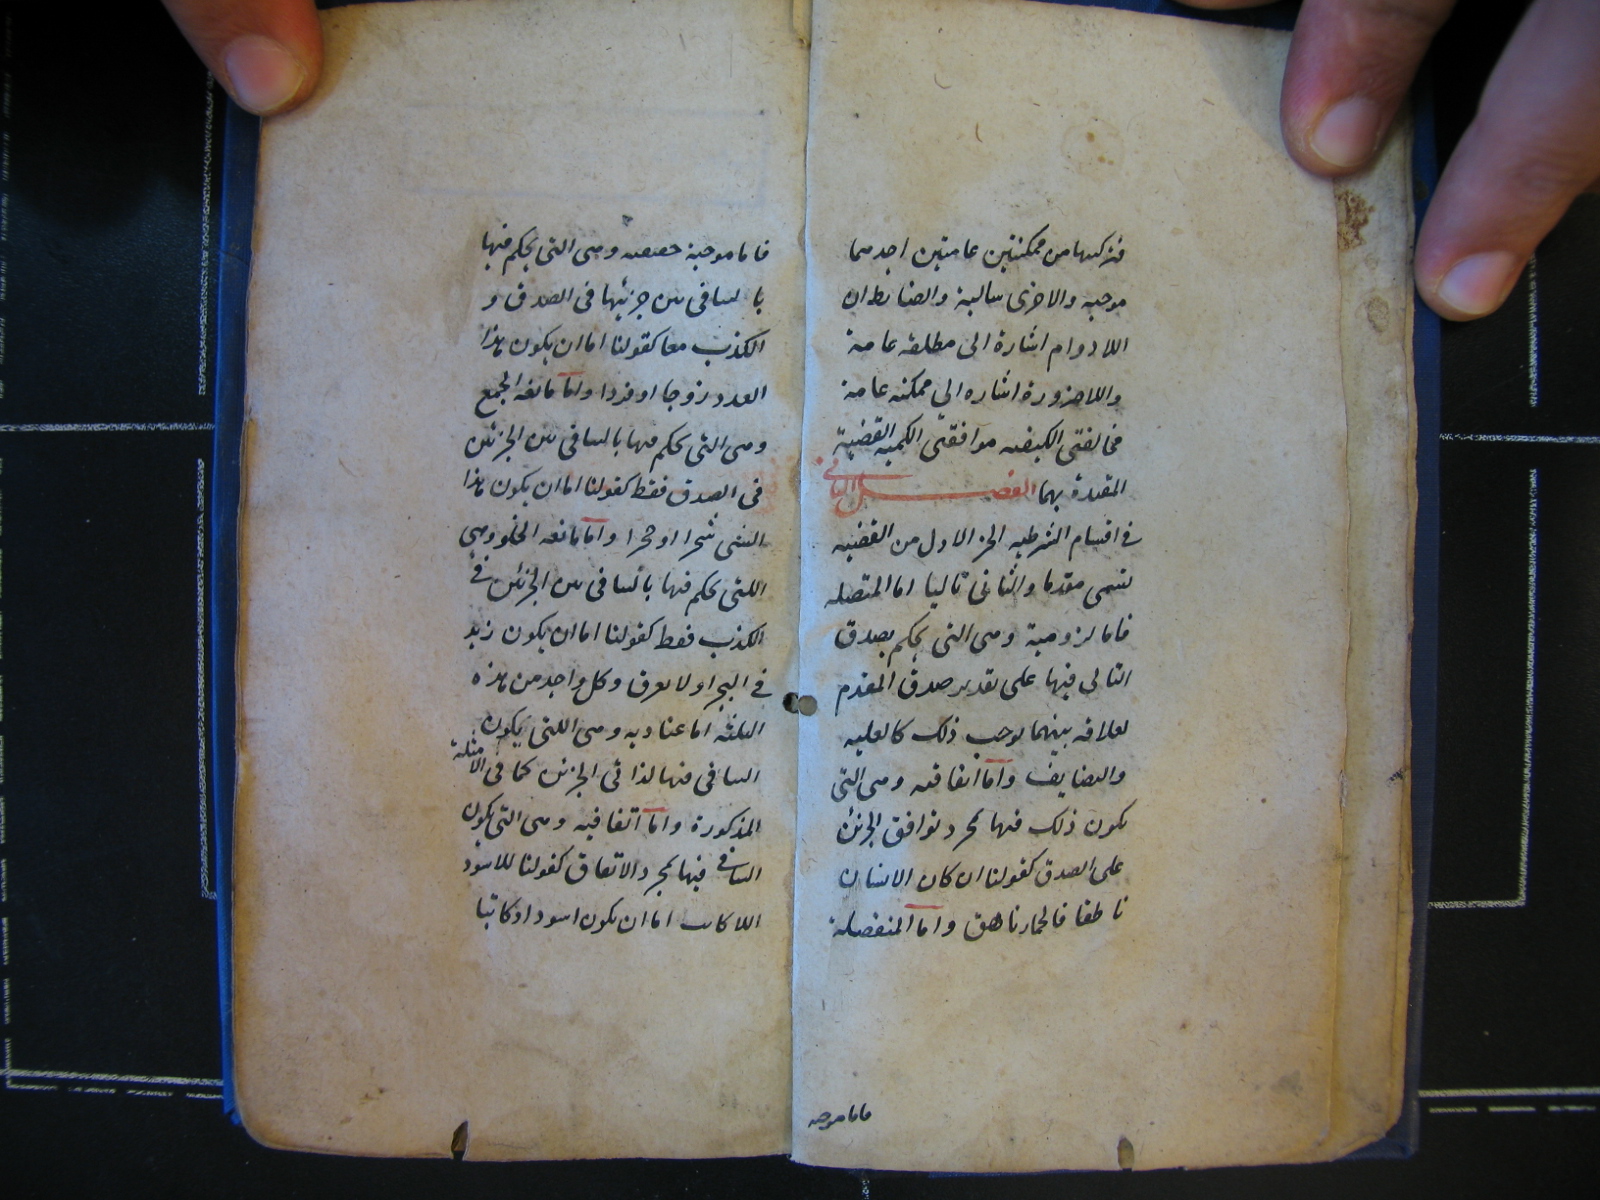 فتركيبها من ممكنتين عامتين احديهما
موجبه والاخرى سالبة والضابط ان
اللادوام اشارة الى مطلقه عامة
واللاضرورة اشاره الى ممكنه عامة
مخالفتى الكيفيه موافقتى الكمية القضية
المقيدة بهما الفصل الثانى
فى اقسام الشرطيه الجز الاول من القضيه
تسمى مقدما والثانى تاليا اما المتصله
فاما لزومية وهى التى يحكم بصدق
التالى فيها على تقدير صدق المقدم
لعلاقه بينهما توجب ذلك كالعليه
والتضايف واما اتفاقيه وهى التى
يكون ذلك فيها بمجرد توافق الجزئين
على الصدق كقولنا ان كان الانسان
ناطقا فالحمار ناهق واما المنفصلة
فاما موجبه
فاما موجبة حقيقيه وهى التى يحكم فيها
بالتنافى بين جزئيها فى الصدق و
الكذب معا كقولنا اما ان يكون هذا
العدد زوجا او فردا واما مانعه الجمع
وهى التى يحكم فيها بالتنافى بين الجزئين
فى الصدق فقط كقولنا اما ان يكون هذا
الشىء شجرا او حجرا واما مانعه الخلو وهى
اللتى يحكم فيها بالتنافى بين الجزئين فى
الكذب فقط كقولنا اما ان يكون زيد
فى البحر او لا يغرق وكل واحد من هذه
الثلثه اما عناديه وهى اللتى يكون
التنافى فيها لذاتى الجزئين كما فى الامثلة
المذكورة واما اتفاقيه وهى التى يكون
التنافى فيها بمجرد الاتفاق كقولنا للاسود
اللا كاتب اما ان يكون اسود او كاتبا